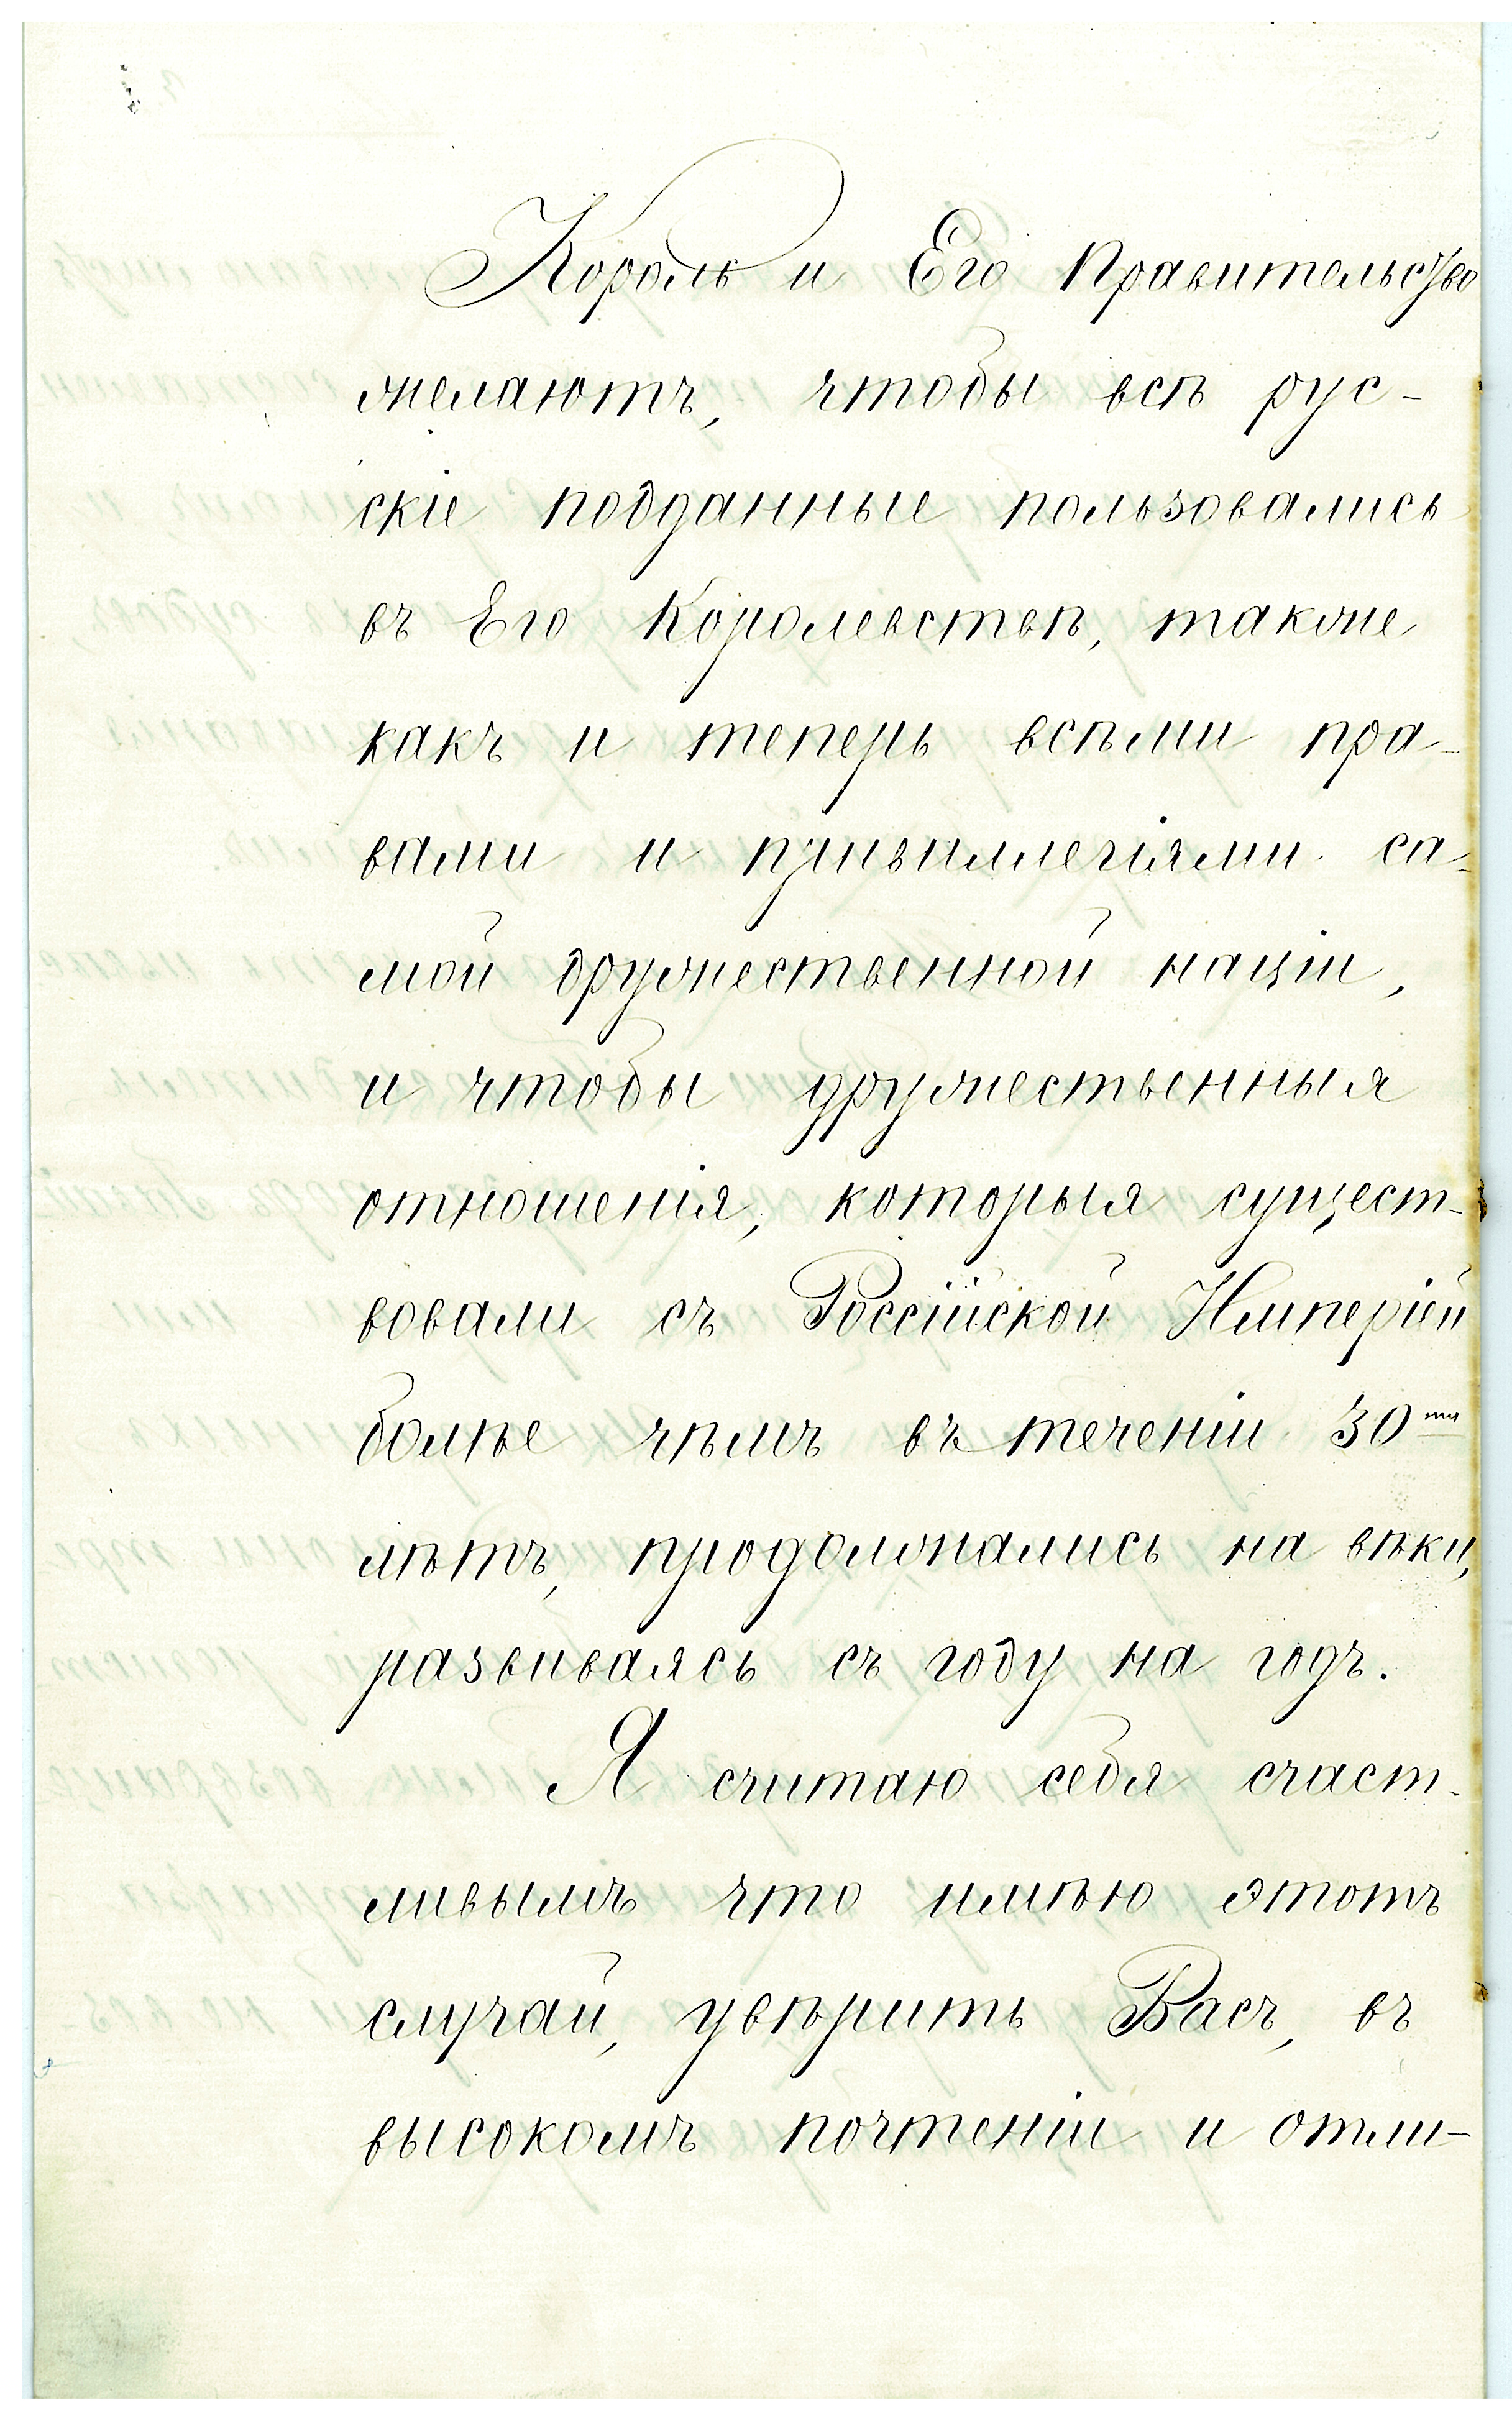 Король и Его Правительство
желаютъ, чтобы всѣ рус-
скіе подданные пользовались
въ Его Королевствѣ, также
какъ и теперь всѣми пра-
вами и привиллегіями са-
мой дружественной націи,
и чтобы дружественныя
отношенія, которыя сущест-
вовали съ Россійской Имперіей
болѣе чѣмъ въ теченіи 30ти
лѣтъ, продолжались на вѣки,
развиваясь съ году на годъ.
Я считаю себя счаст-
ливымъ что имѣю этотъ
случай, увѣрить Васъ, въ
высокомъ почтеніи и отли-